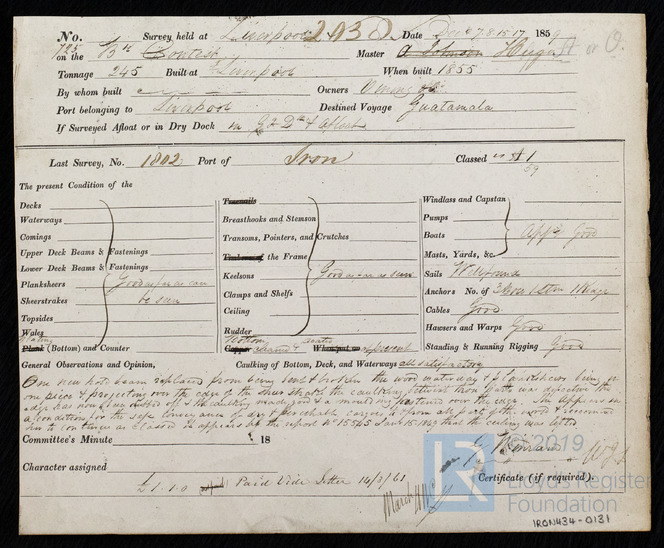 No. Survey held at Liverpool Date Dec 7.8.15.17 1859
725 on the Bk Master
Tonnage 245 Built at Liverpool When built 1855
By whom built Owners Owens &
Port belonging to Liverpool Destined Voyage Guatamala
If Surveyed Afloat or in Dry Dock in & afloat
Last Survey, No. 1802 Port of Iron Classed A1
59
The present Condition of the
Decks
Waterways
Comings
Upper Deck Beams & Fastenings
Lower Deck Beams & Fastenings
Planksheers Good as far as can
Sheerstrakes be seen
Topsides
Wales
Plating
Plank (Bottom) and Counter
Treenails
Breasthooks and Stemson
Transoms, Pointers, and Crutches
Timbers of the Frame
Keelsons Good as far as seen
Clamps and Shelfs
Ceiling
Rudder
Bottom coated
Copper cleaned & When put on at present
Windlass and Capstan
Pumps
Boats App'd Good
Masts, Yards, &c.
Sails Well found
Anchors No. of 3 Bow 1 Stern 1 Kedge
Cables Good
Hawsers and Warps Good
Standing & Running Rigging Good
General Observations and Opinion, Caulking of Bottom, Deck, and Waterways all satisfactory
One new hold beam replaced from being bent & broken the wood waterway being in
one piece & projecting over the edge of the the caulking at that part was defective the
edge has now been dubbed off & the caulking made good & a moulding fastened over the edge. She appears in
a condition for the safe conveyance of dry & perishable cargoes to & from all parts of the world & recommend
her to continue as classed. It appears by the report No 15545 that the ceiling was lifted
Committee's Minute 18
Character assigned
£1.1.0 Paid Vide Letter 14/3/61
Certificate (if required).
© 2019
LR
Lloyd's Register
Foundation
IRON434-0131